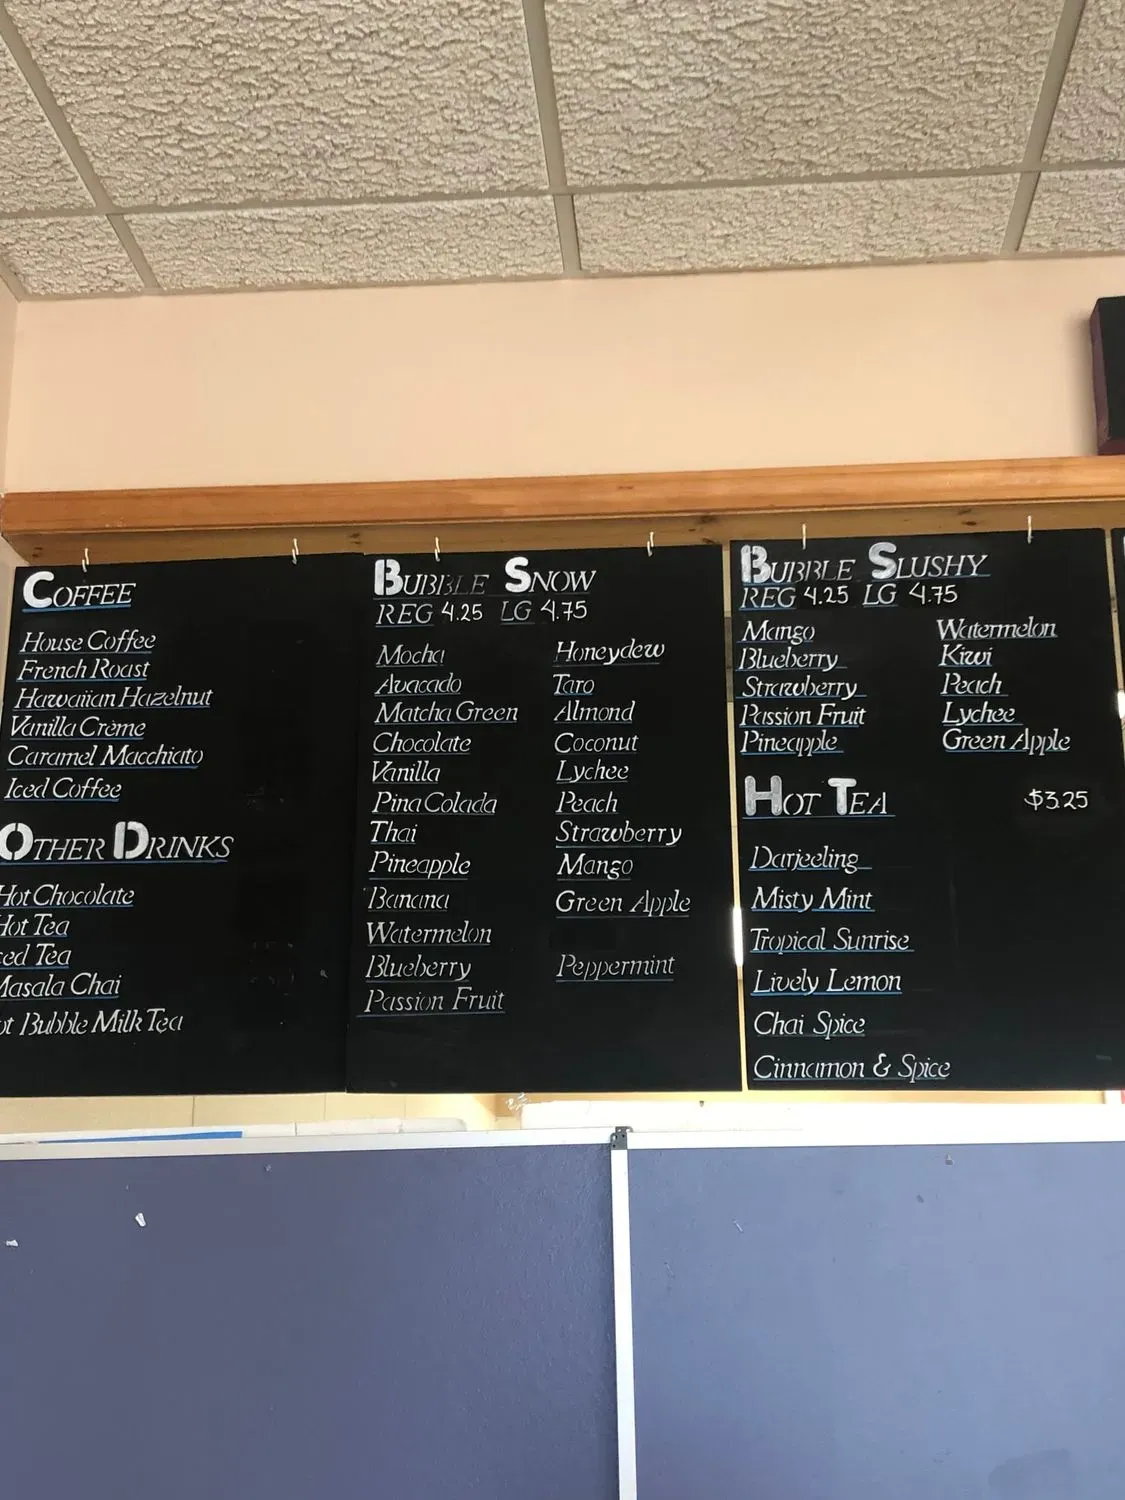 COFFEE
House Coffee
French Roast
Hawaiian Hazelnut
Vanilla Crème
Caramel Macchiato
Iced Coffee
OTHER DRINKS
Hot Chocolate
Hot Tea
ced Tea
Masala Chai
ot Bubble Milk Tea
BUBBLE SNOW
REG 4.25 LG 4.75
Mocha
Avacado
Matcha Green
Chocolate
Vanilla
Pina Colada
Thai
Pineapple
Banana
Watermelon
Blueberry
Passion Fruit
Honeydew
Taro
Almond
Coconut
Lychee
Peach
Strawberry
Mango
Green Apple
Peppermint
BUBBLE SLUSHY
REG 4.25 LG 4.75
Mango
Blueberry
Strawberry
Passion Fruit
Pineapple
Watermelon
Kiwi
Peach
Lychee
Green Apple
HOT TEA $3.25
Darjeeling
Misty Mint
Tropical Sunrise
Lively Lemon
Chai Spice
Cinnamon & Spice